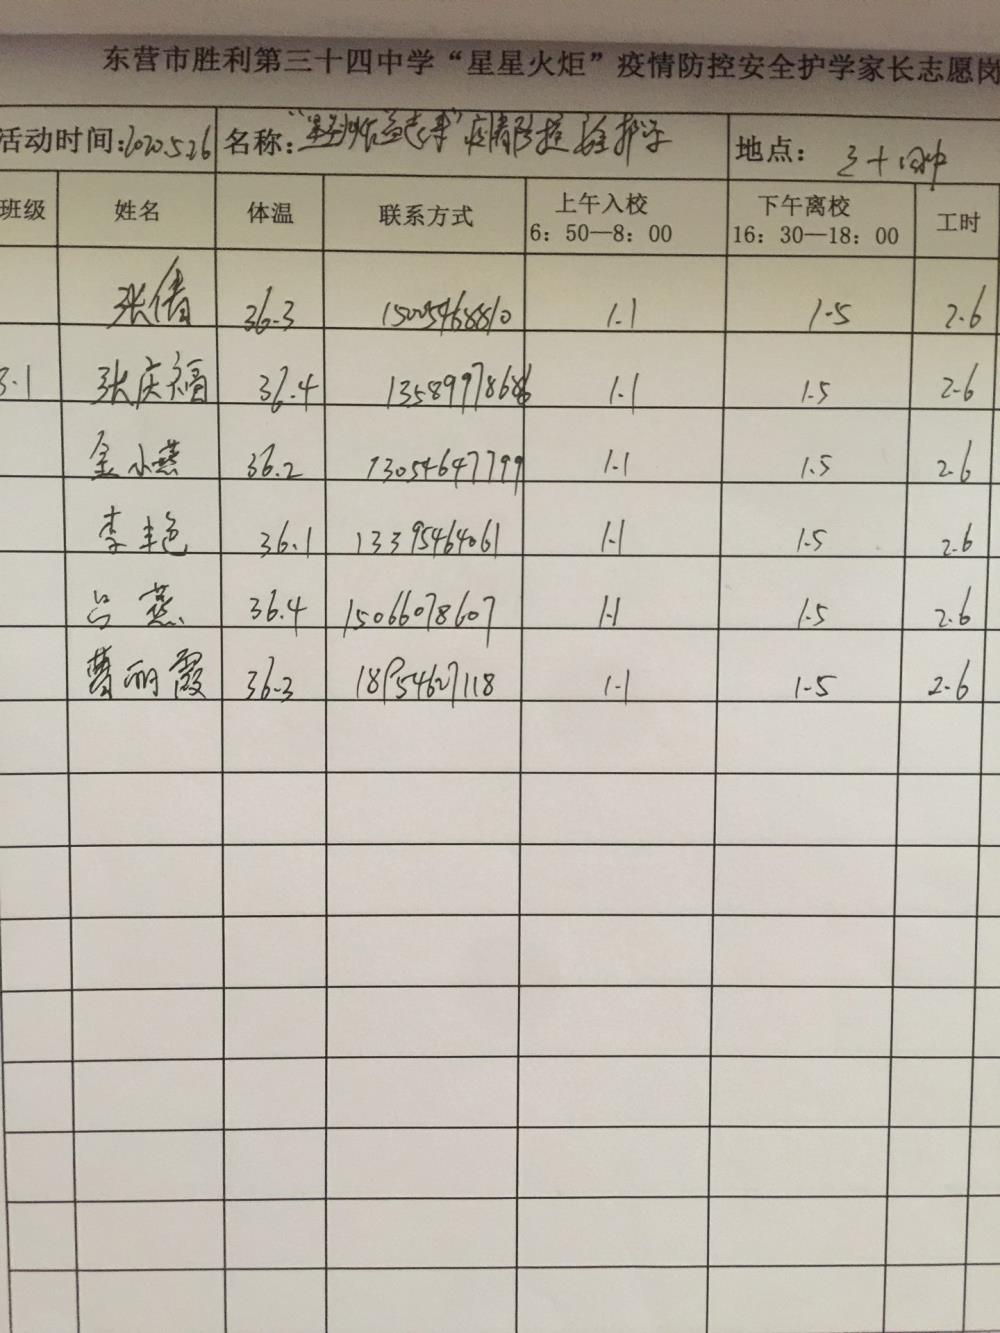 东营市胜利第三十四中学“星星火炬”疫情防控安全护学家长志愿岗
活动时间:2020.5.26 名称: 疫情防控安全护学 地点: 三十四中
班级 姓名 体温 联系方式 上午入校 下午离校 工时
6：50—8：00 16：30—18：00
张倩 36.3 15005468810 1.1 1.5 2.6
3.1 张庆福 36.4 13589978686 1.1 1.5 2.6
金小燕 36.2 13054647799 1.1 1.5 2.6
李丰色 36.1 13395464061 1.1 1.5 2.6
吕燕 36.4 15066078607 1.1 1.5 2.6
曹丽霞 36.3 18954627118 1.1 1.5 2.6